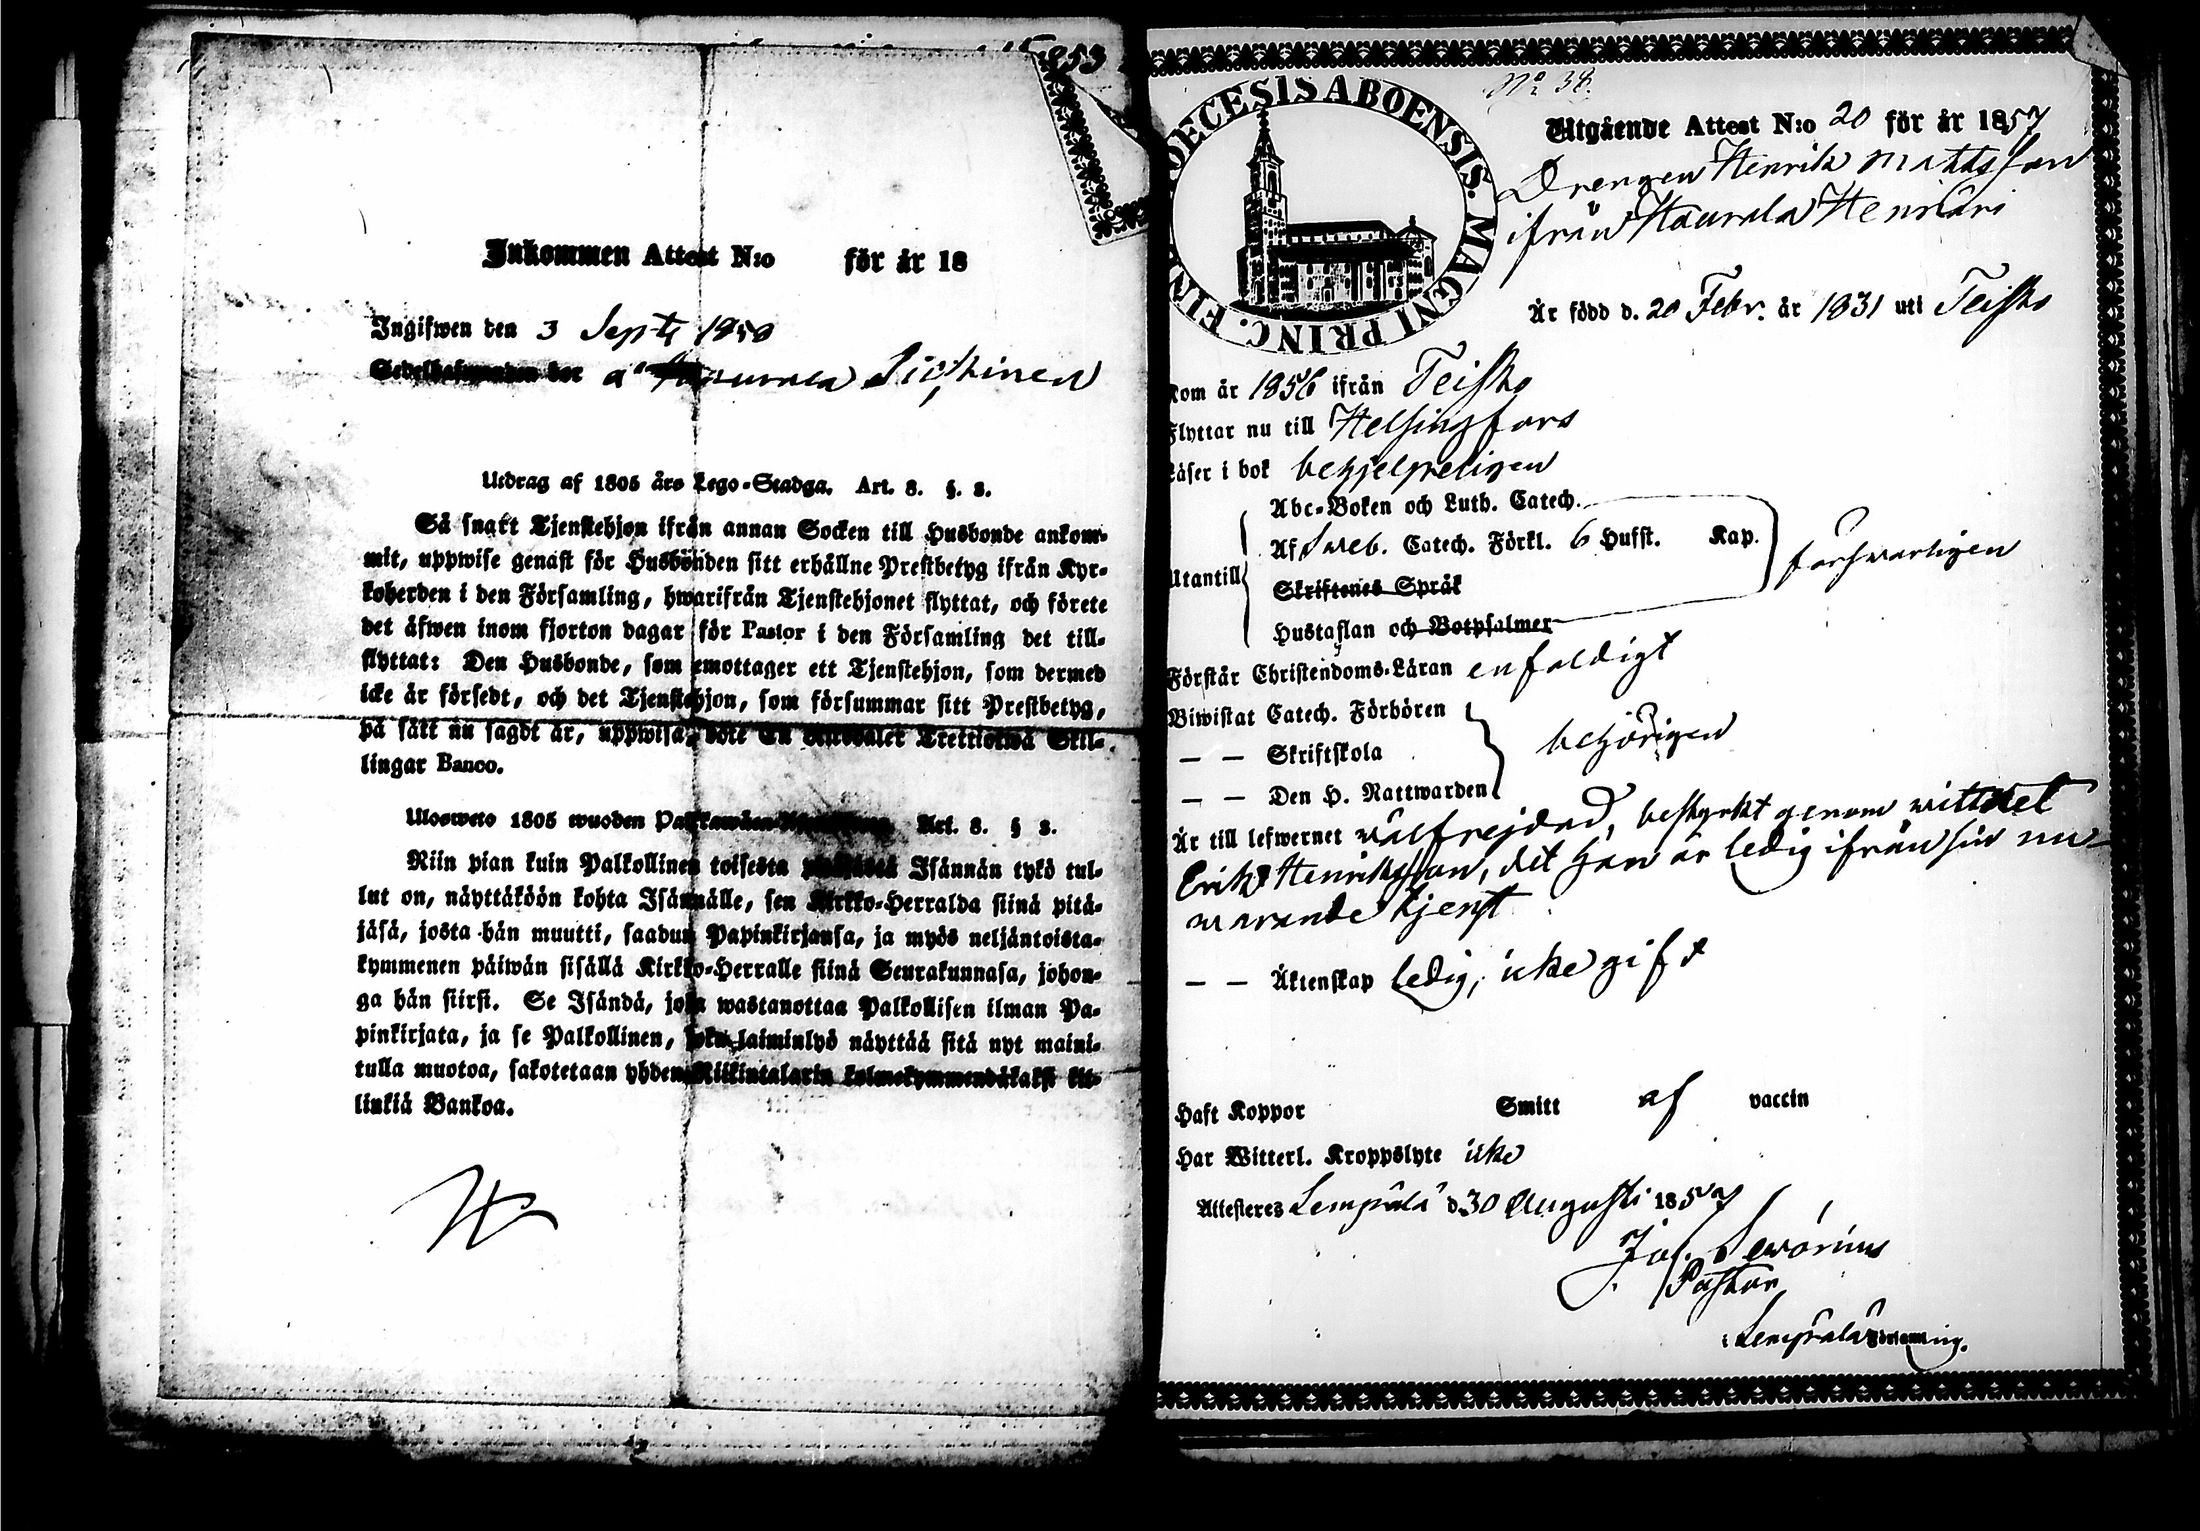 853
Inkommen Attest N:o för år 18
Ingifwen den 3 Sept 1858
Sedelhafwanden bor a
Utdrag af 1805 års Lego-Stadga. Art. 8. §. 2.
Så snart Tjenstehjon ifrån annan Socken till Husbonde ankom-
mit, uppwise genast för Husbonden sitt erhållne Prestbetyg ifrån Kyr-
koherden i den Församling, hwarifrån Tjenstehjonet flyttat, och förete
det äfwen inom fjorton dagar för Pastor i den Församling det till-
flyttat: Den Husbonde, som emottager ett Tjenstehjon, som dermed
icke är försedt, och det Tjenstehjon, som försummar sitt Prestbetyg,
på sätt nu sagdt är, uppwisa, böte En Riksdaler Trettiotwå Skil-
lingar Banco.
Ulosweto 1805 wuoden Art. 8. § 2.
Niin pian kuin Palkollinen toisesta Isännän tykö tul-
lut on, näyttäköön kohta Isännälle, sen Kirkko-Herralda siinä pitä-
jäsä, josta hän muutti, saadun Papinkirjansa, ja myös neljäntoista-
kymmenen päiwän sisällä Kirkko-Herralle siinä Seurakunnasa, johon-
ga hän siirsi. Se Isändä, joka wastanottaa Palkollisen ilman Pa-
pinkirjata, ja se Palkollinen, joka laiminlyö näyttää sitä nyt maini-
tulla muotoa, sakotetaan yhden Riikintalarin kolmekymmendäkaksi kil-
linkiä Bankoa.
No 38.
DIOECESIS ABOENSIS. MAGNI PRINC. FINL
Utgående Attest N:o 20 för år 1857
Drengen Henrik Mattsson
ifrån Haurala Henrikäri
Är född d. 20 Febr. år 1831 uti Teisko
Kom år 1856 ifrån Teisko
Flyttar nu till Helsingfors
Läser i bok behjelpeligen
Abc-Boken och Luth. Catech.
Af Sweb. Catech. Förkl. 6 Hufst. Kap.
Utantill försvarligen
Skriftenes Språk
Hustaflan och Botpsalmer
Förstår Christendoms-Läran enfaldigt
Biwistat Catech. Förhören
— — Skriftskola behörigen
— — Den H. Nattwarden
Är till lefwernet välfrejdad, bestyrkt genom wittnet
Erik Henriksson, det han är ledig ifrån sin nu-
warande tjenst
— — Äktenskap ledig, icke gift
Haft Koppor Smitt af vaccin
Har Witterl. Kroppslyte icke
Attesteres Lempälä d. 30 Augusti 1857
Jos. Sewonius
Pastor
i Lempälä Församling.